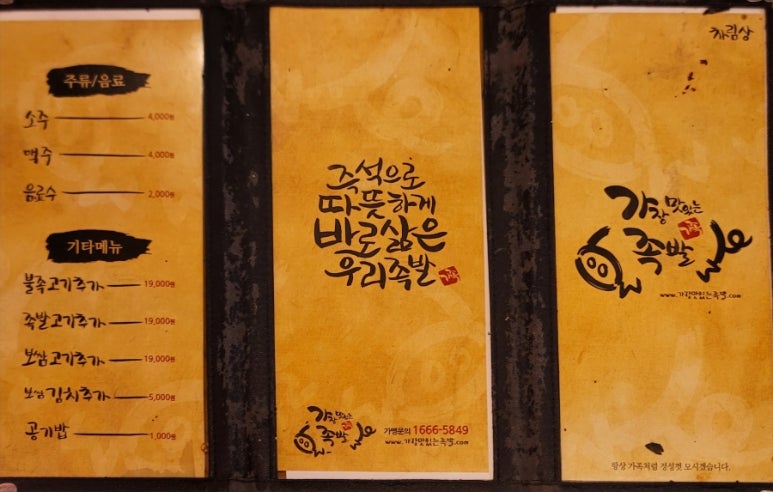 주류/음료
소주 4,000원
맥주 4,000원
음료수 2,000원
기타메뉴
불족고기추가 19,000원
족발고기추가 19,000원
보쌈고기추가 19,000원
보쌈김치추가 5,000원
공기밥 1,000원
즉석으로
따뜻하게
바로삶은
우리족발
가장맛있는
족발
가맹문의 1666-5849
www.가장맛있는족발.com
차림상
가장맛있는
족발
www.가장맛있는족발.com
항상 가족처럼 정성껏 모시겠습니다.